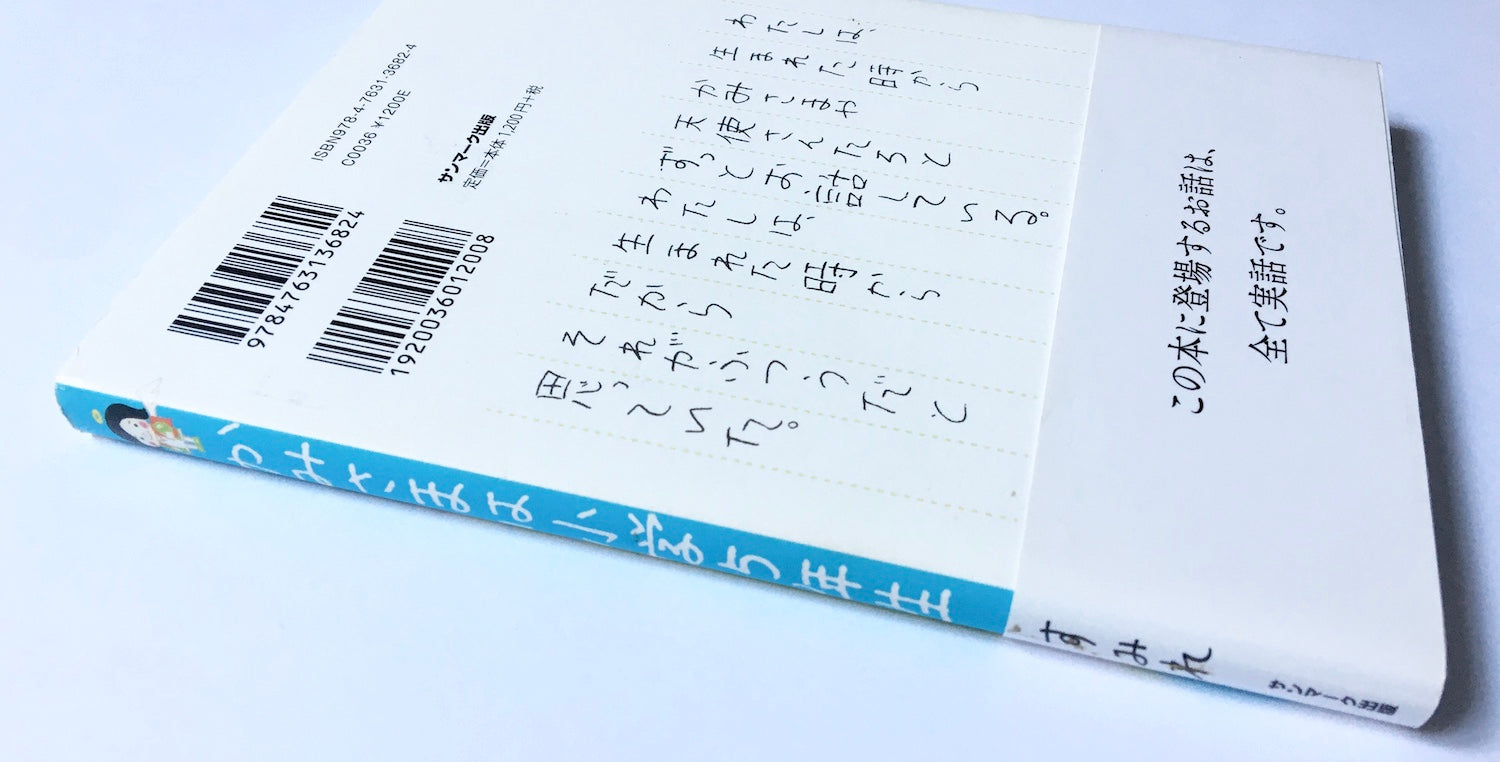 わたしは、
生まれた時から
かみさまや
天使さんたちと
ずっとお話している。
わたしは、
生まれた時から
だから
それがふつうだと
思っていた。
この本に登場するお話は、
全て実話です。
ISBN978-4-7631-3682-4
C0036 ¥1200E
サンマーク出版
定価=本体1,200円+税
9784763136824
1920036012008
かみさまは小学5年生
すみれ
サンマーク出版